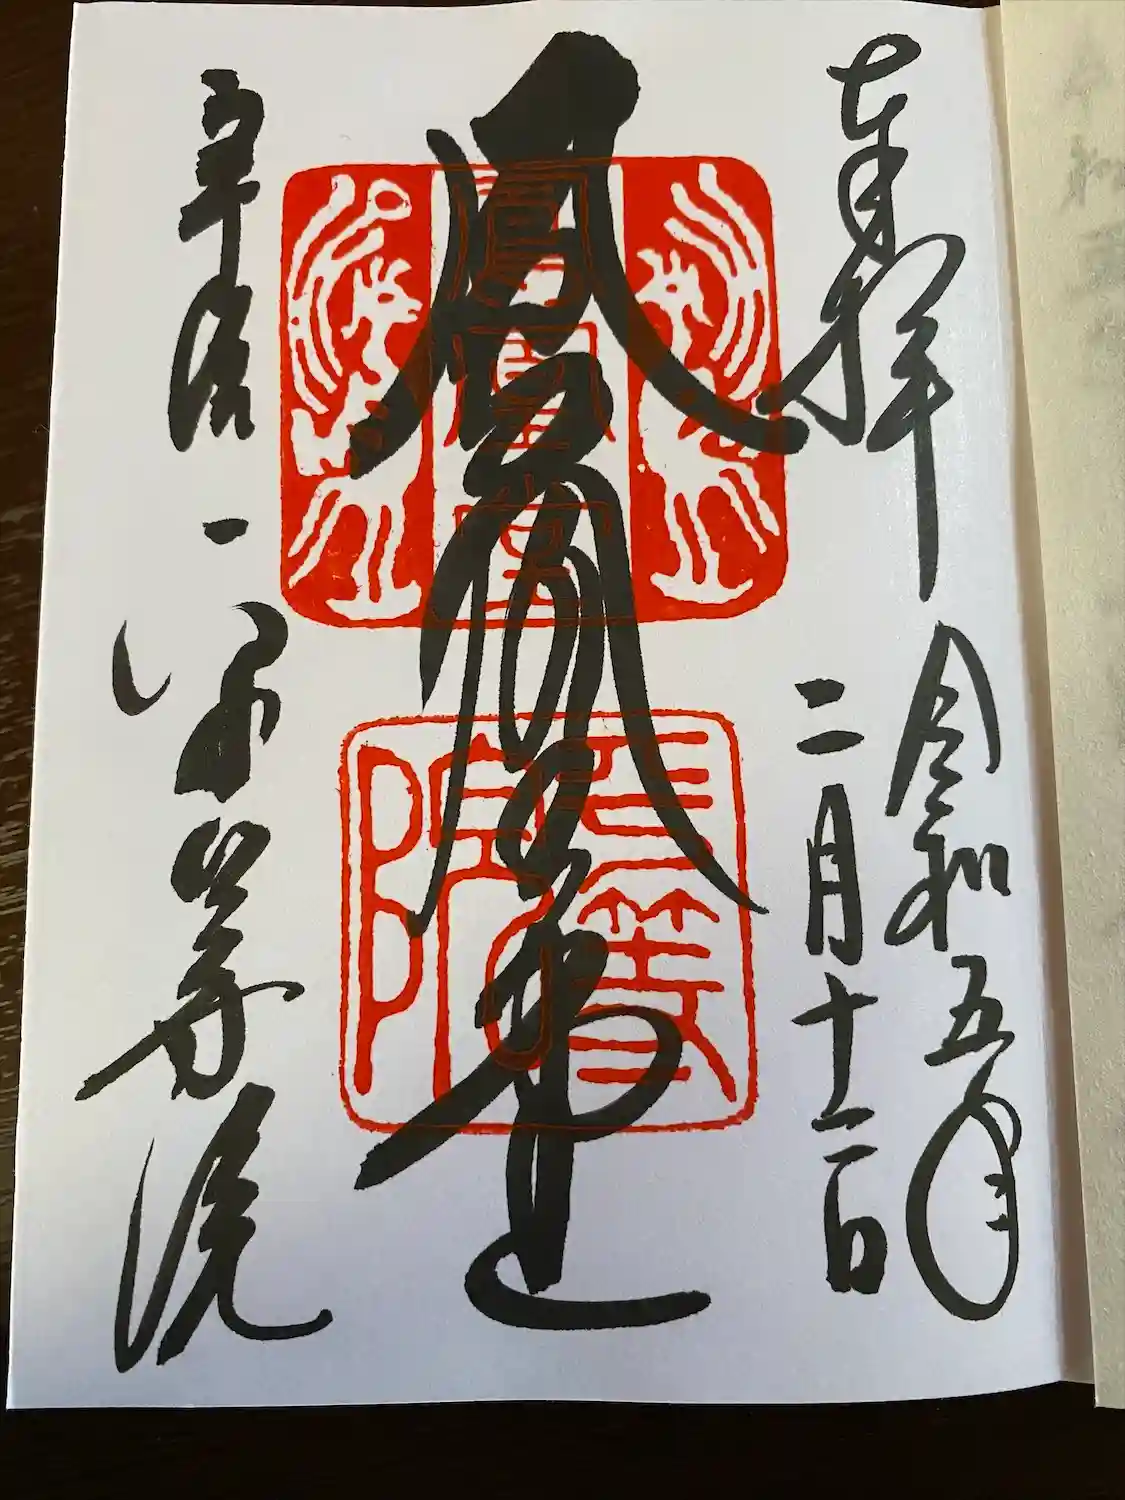 奉拝
令和五年
二月十二日
鳳凰堂
鳳凰堂
平等院
宇治
平等院